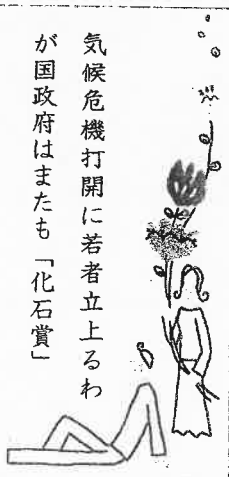 気候危機打開に若者立上るわ
が国政府はまたも「化石賞」